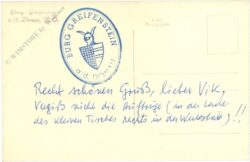 Burg Greifenstein
a.d. Donau, N.Ö.
BURG GREIFENSTEIN
a. d. DONAU
Recht schönen Gruß, lieber Vik,
Vergiß nicht die Aufträge (in der Lade
des kleinen Tisches rechts in der Werkstatt)!!